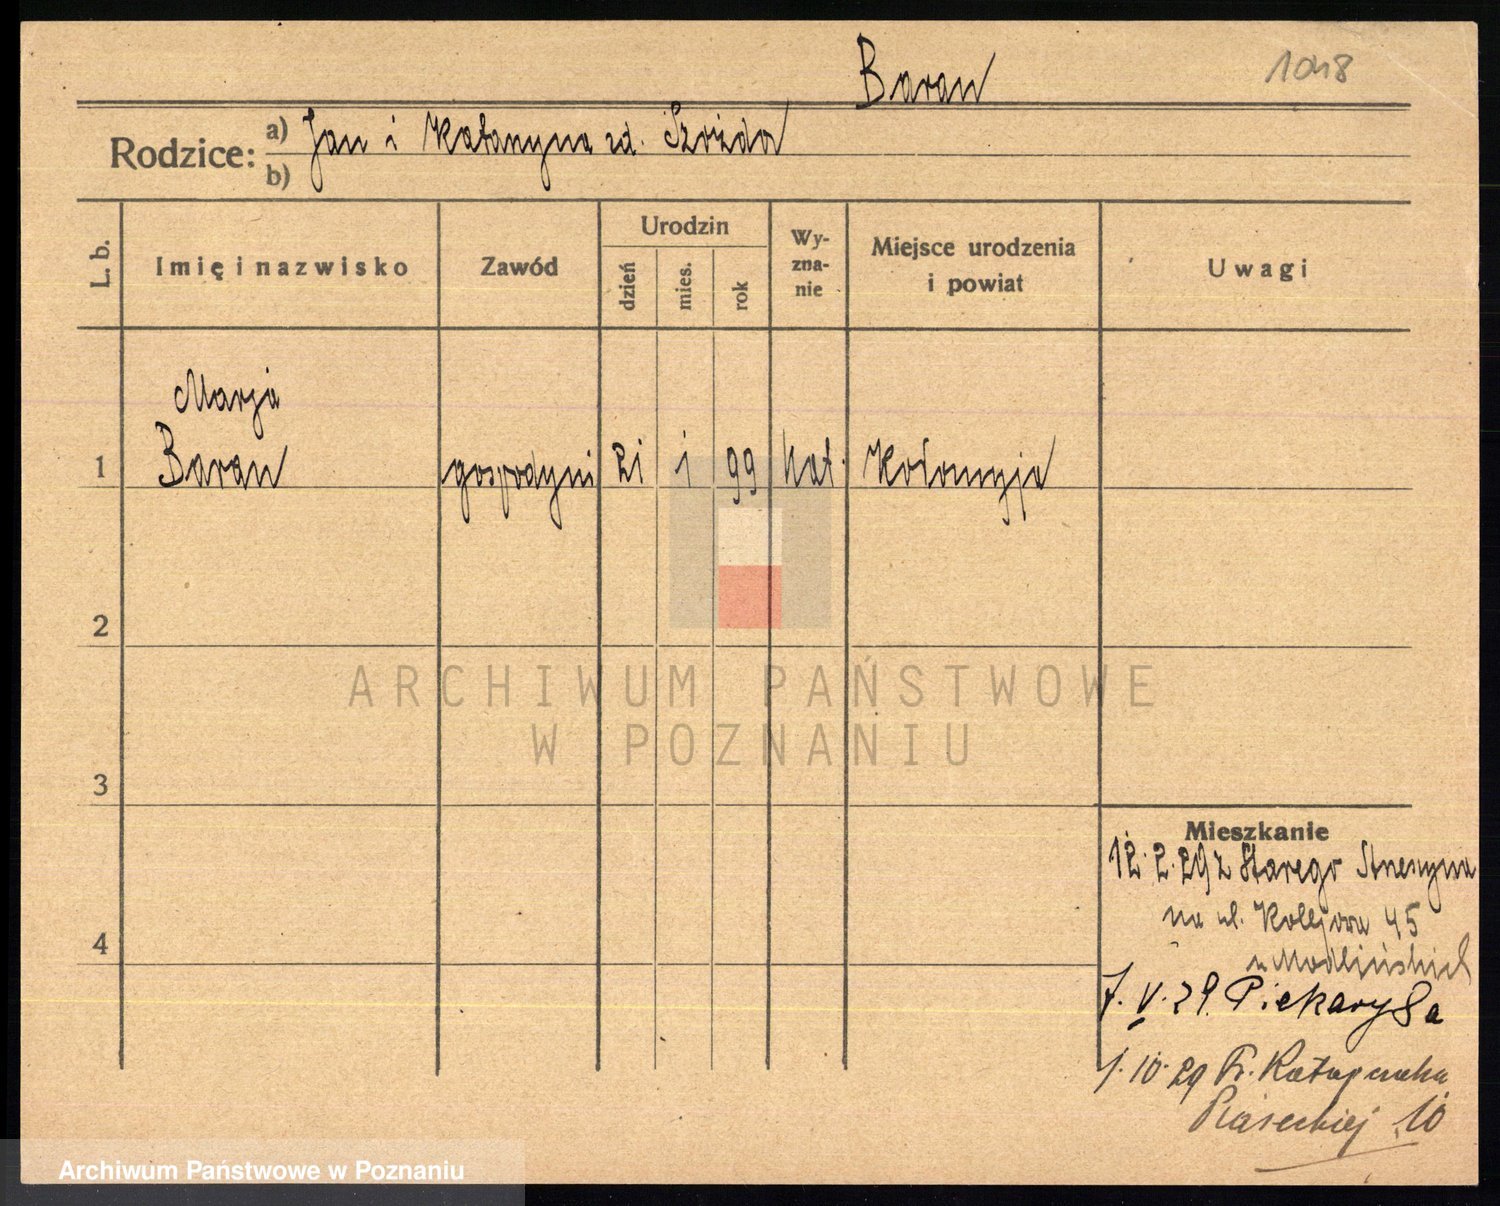 Baran
1048
Rodzice:
a) Jan i Katarzyna zd.
b)
L. b.
Imię i nazwisko
Zawód
Urodzin
dzień
mies.
rok
Wy-
zna-
nie
Miejsce urodzenia
i powiat
Uwagi
Marja
1 Baran gospodyni 21 1 99 kat. Kołomyja
2
ARCHIWUM PAŃSTWOWE
W POZNANIU
3
Mieszkanie
12.2.29 z Starego
na ul. Kolejowa 45
4
u Modlińskich
7. V. 29. Piekary 8a
1.10.29
10
Archiwum Państwowe w Poznaniu